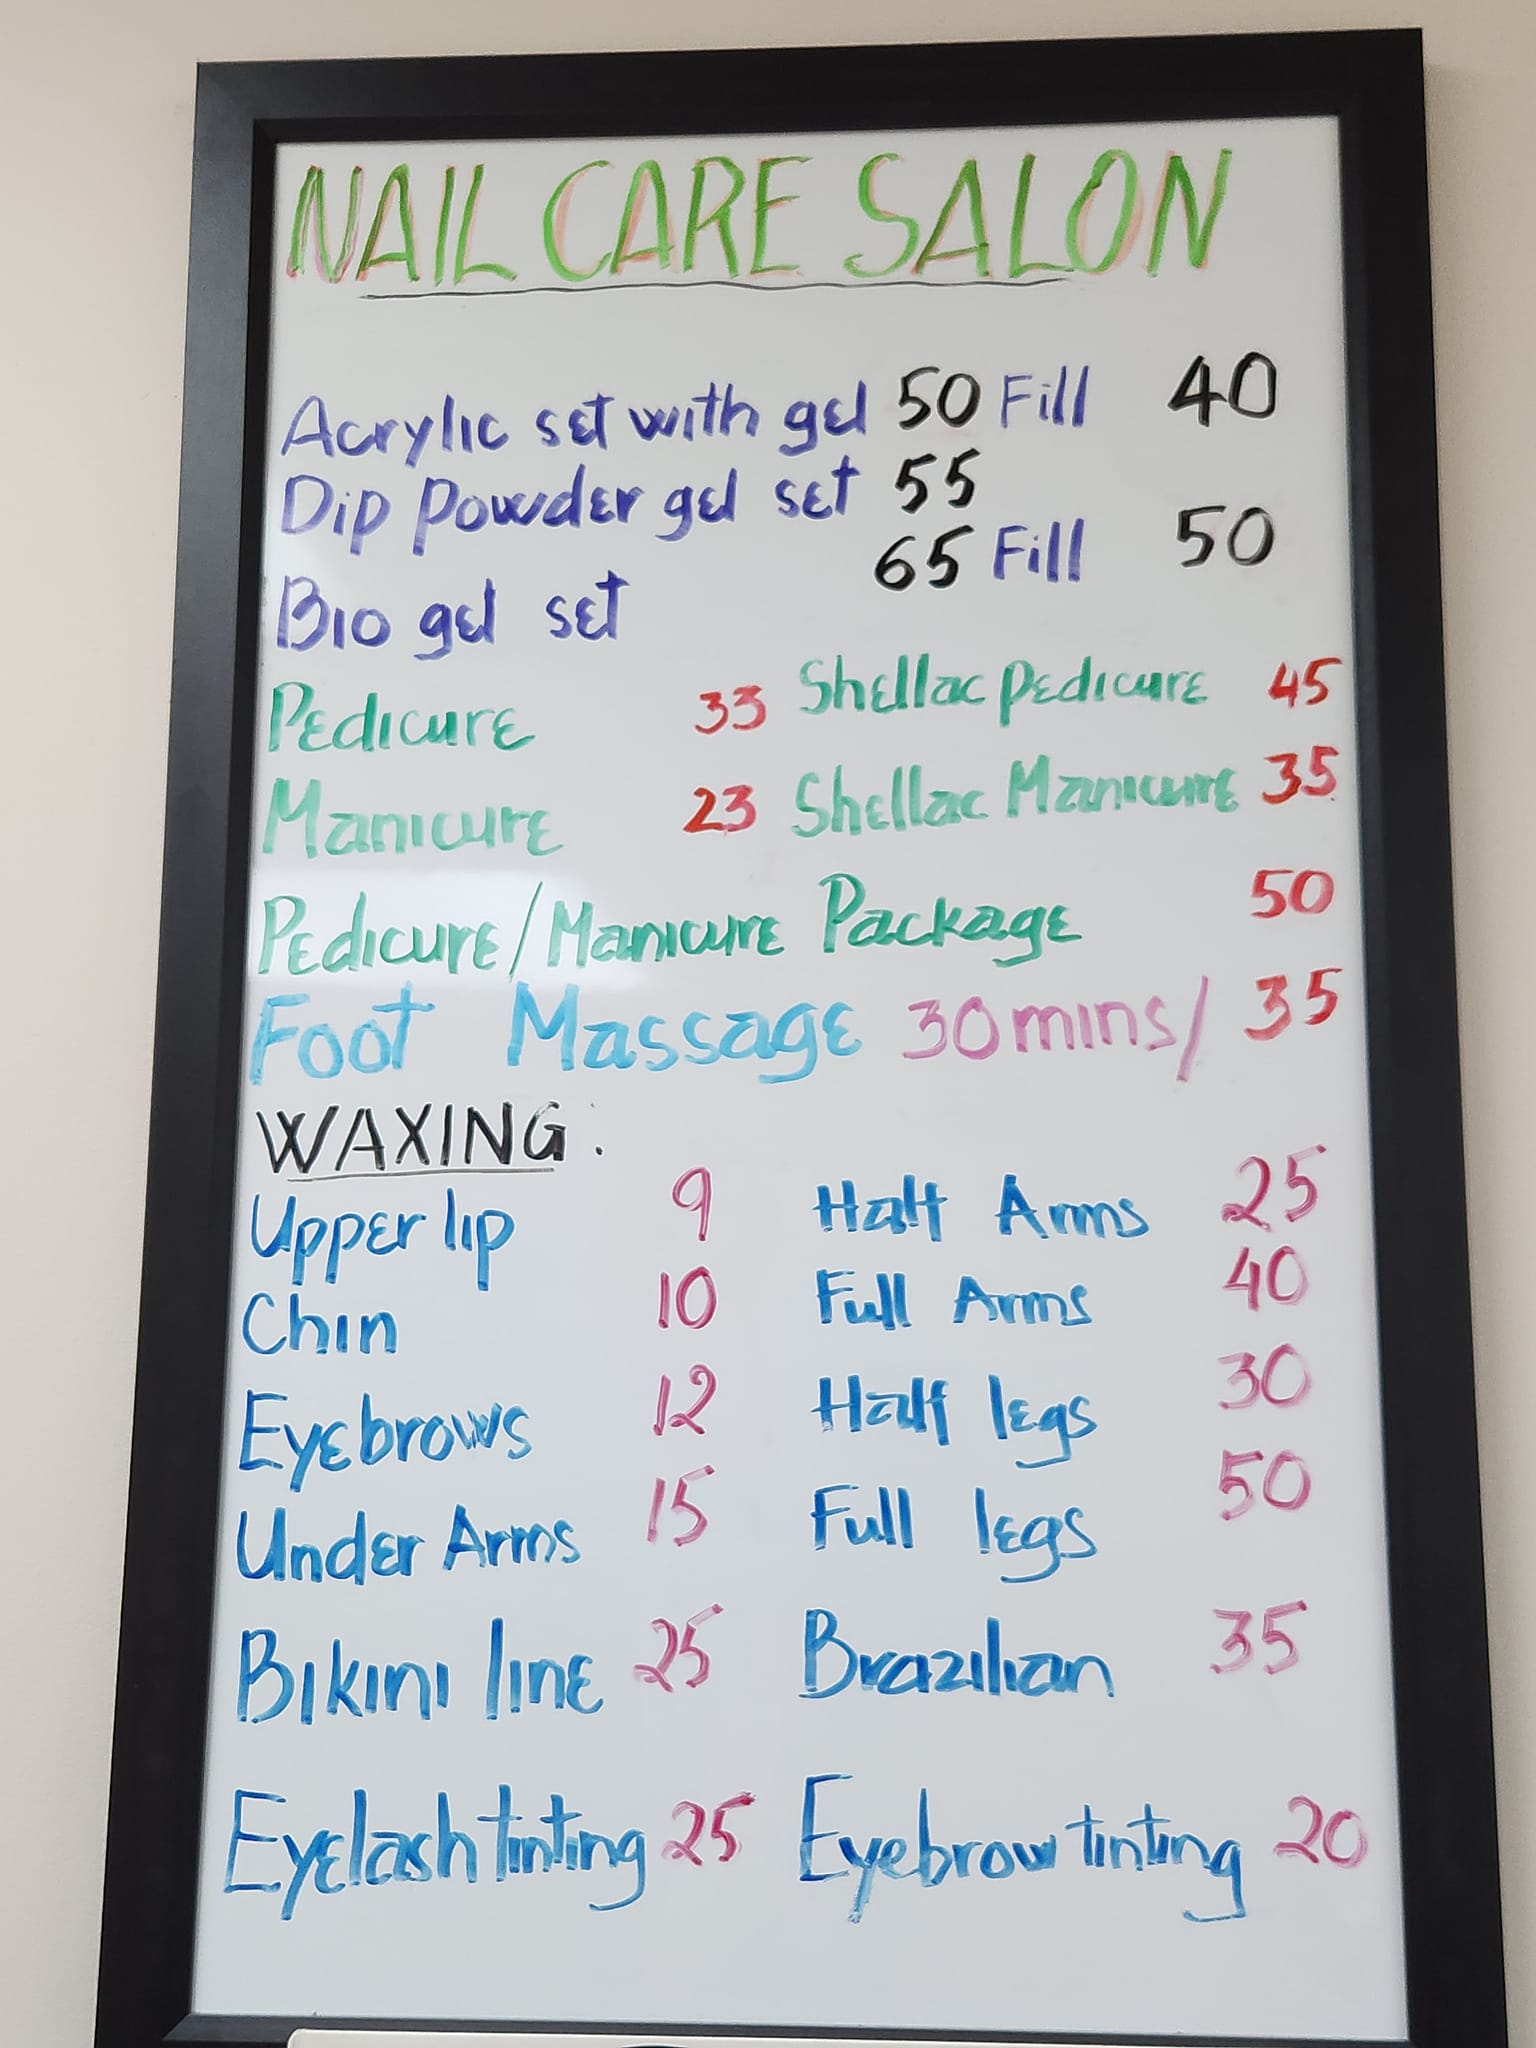 NAIL CARE SALON
Acrylic set with gel 50 Fill 40
Dip Powder gel set 55
Bio gel set 65 Fill 50
Pedicure 33 Shellac Pedicure 45
Manicure 23 Shellac Manicure 35
Pedicure/Manicure Package 50
Foot Massage 30mins/ 35
WAXING:
Upper lip 9 Half Arms 25
Chin 10 Full Arms 40
Eyebrows 12 Half legs 30
Under Arms 15 Full legs 50
Bikini line 25 Brazilian 35
Eyelash tinting 25 Eyebrow tinting 20